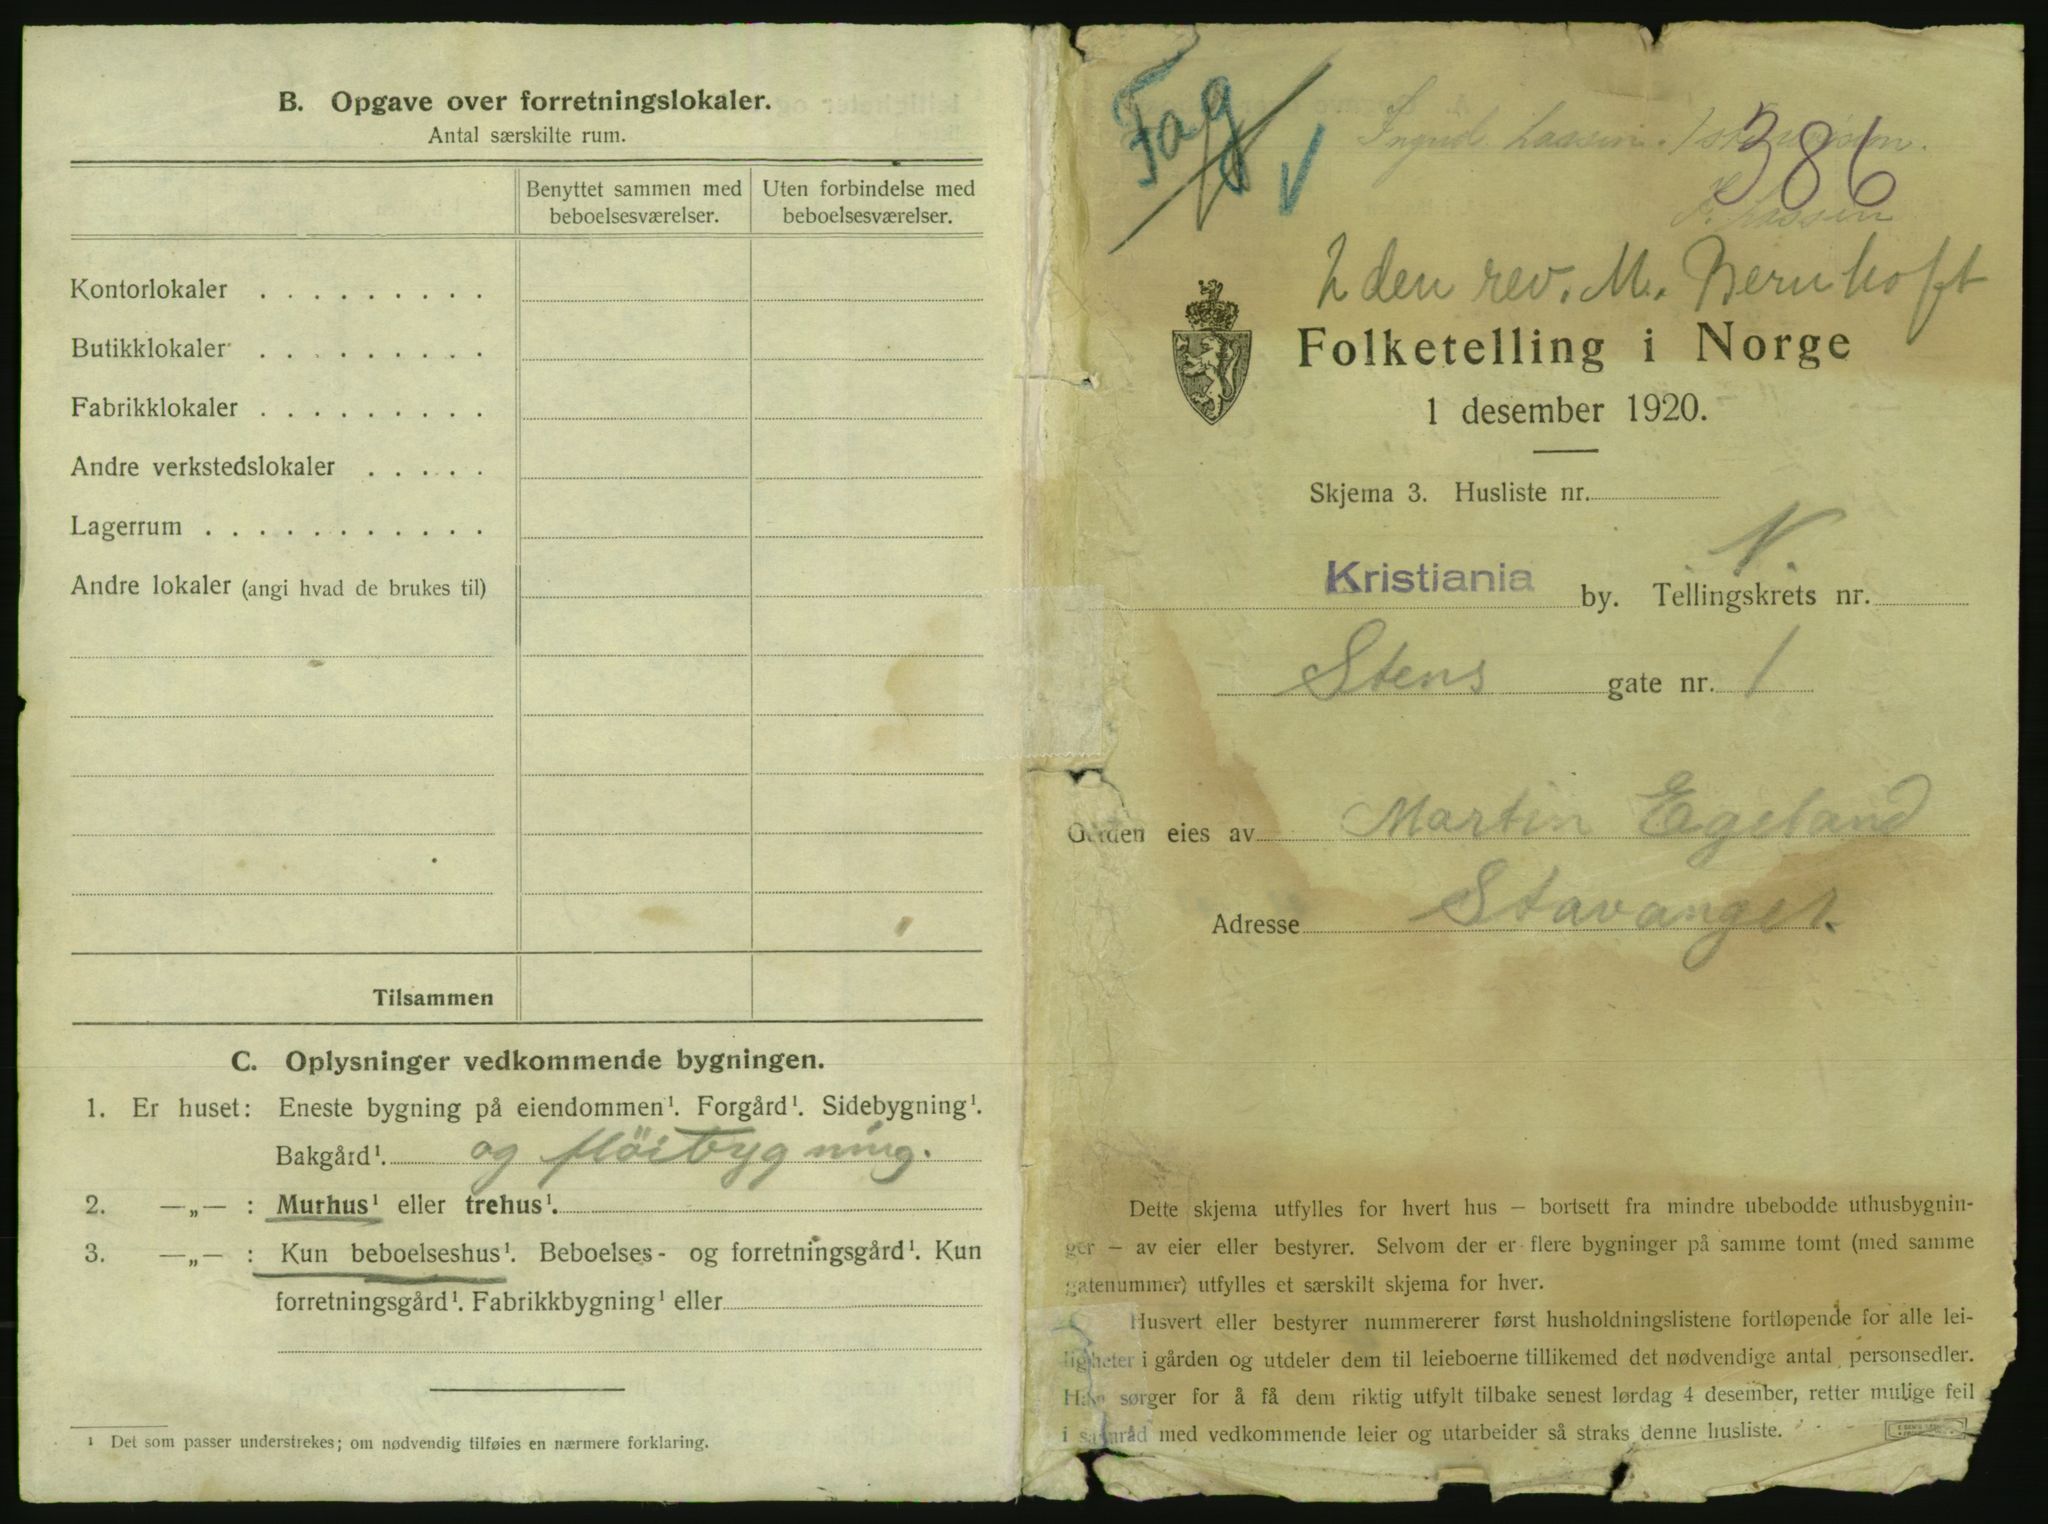 B. Opgave over forretningslokaler.
Antal særskilte rum.
Benyttet sammen med beboelsesværelser.
Uten forbindelse med beboelsesværelser.
Kontorlokaler . . . . . . . . .
Butikklokaler . . . . . . . . .
Fabrikklokaler . . . . . . . . .
Andre verkstedslokaler . . . . .
Lagerrum . . . . . . . . . . .
Andre lokaler (angi hvad de brukes til)
Tilsammen
C. Oplysninger vedkommende bygningen.
1. Er huset: Eneste bygning på eiendommen¹. Forgård¹. Sidebygning¹.
Bakgård¹. og flöibygning.
2. —„— : Murhus¹ eller trehus¹.
3. —„— : Kun beboelseshus¹. Beboelses- og forretningsgård¹. Kun
forretningsgård¹. Fabrikkbygning¹ eller
¹ Det som passer understrekes; om nødvendig tilføies en nærmere forklaring.
Fag
Ingrid Lassen. 1ste
386
Lassen
2den rev. M. Bernhoft
Folketelling i Norge
1 desember 1920.
Skjema 3. Husliste nr.
N.
Kristiania by. Tellingskrets nr.
Stens gate nr. 1
Gården eies av Martin Egeland
Adresse Stavanger.
Dette skjema utfylles for hvert hus — bortsett fra mindre ubebodde uthusbygnin-
ger — av eier eller bestyrer. Selvom der er flere bygninger på samme tomt (med samme
gatenummer) utfylles et særskilt skjema for hver.
Husvert eller bestyrer nummererer først husholdningslistene fortløpende for alle lei-
ligheter i gården og utdeler dem til leieboerne tillikemed det nødvendige antal personsedler.
Han sørger for å få dem riktig utfylt tilbake senest lørdag 4 desember, retter mulige feil
i samråd med vedkommende leier og utarbeider så straks denne husliste.